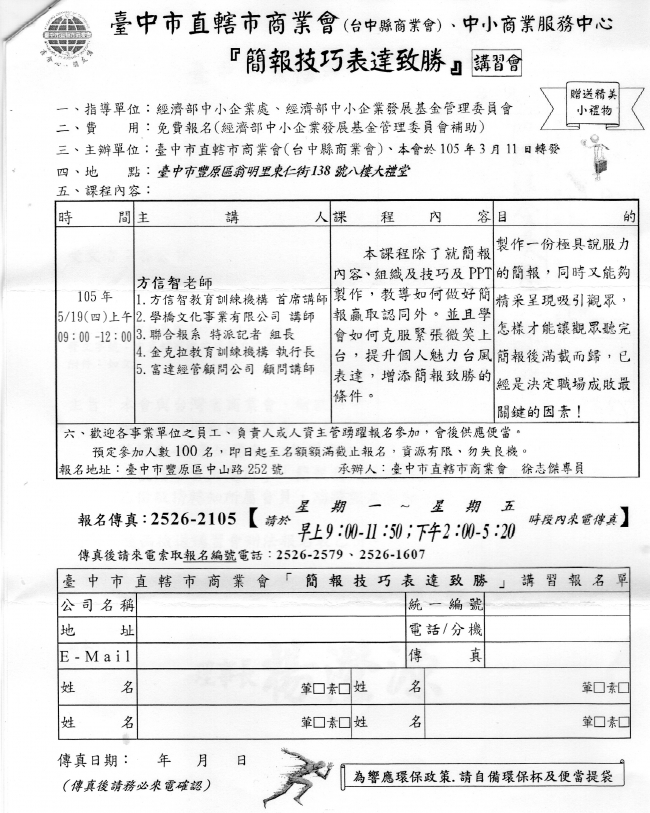 臺中市直轄市商業會(台中縣商業會)、中小商業服務中心
『簡報技巧表達致勝』講習會
贈送精美
小禮物
一、指導單位：經濟部中小企業處、經濟部中小企業發展基金管理委員會
二、費　　用：免費報名(經濟部中小企業發展基金管理委員會補助)
三、主辦單位：臺中市直轄市商業會(台中縣商業會)、本會於105年3月11日轉發
四、地　　點：臺中市豐原區翁明里東仁街138號八樓大禮堂
五、課程內容：
時間 主講人 課程內容 目的
105年
5/19(四)上午
09:00-12:00
方信智老師
1.方信智教育訓練機構 首席講師
2.學橋文化事業有限公司 講師
3.聯合報系 特派記者 組長
4.金克拉教育訓練機構 執行長
5.富達經管顧問公司 顧問講師
本課程除了就簡報
內容、組織及技巧及PPT
製作，教導如何做好簡
報贏取認同外。並且學
會如何克服緊張微笑上
台，提升個人魅力台風
表達，增添簡報致勝的
條件。
製作一份極具說服力
的簡報，同時又能夠
精采呈現吸引觀眾，
怎樣才能讓觀眾聽完
簡報後滿載而歸，已
經是決定職場成敗最
關鍵的因素！
六、歡迎各事業單位之員工、負責人或人資主管踴躍報名參加，會後供應便當。
預定參加人數100名，即日起至名額額滿截止報名，資源有限、勿失良機。
報名地址：臺中市豐原區中山路252號　承辦人：臺中市直轄市商業會 徐志傑專員
報名傳真：2526-2105【請於 星期一～星期五
早上9:00-11:50；下午2:00-5:20 時段內來電傳真】
傳真後請來電索取報名編號電話：2526-2579、2526-1607
臺中市直轄市商業會「簡報技巧表達致勝」講習報名單
公司名稱 統一編號
地址 電話/分機
E-Mail 傳真
姓名 葷□素□ 姓名 葷□素□
姓名 葷□素□ 姓名 葷□素□
傳真日期：　年　月　日
(傳真後請務必來電確認)
為響應環保政策.請自備環保杯及便當提袋